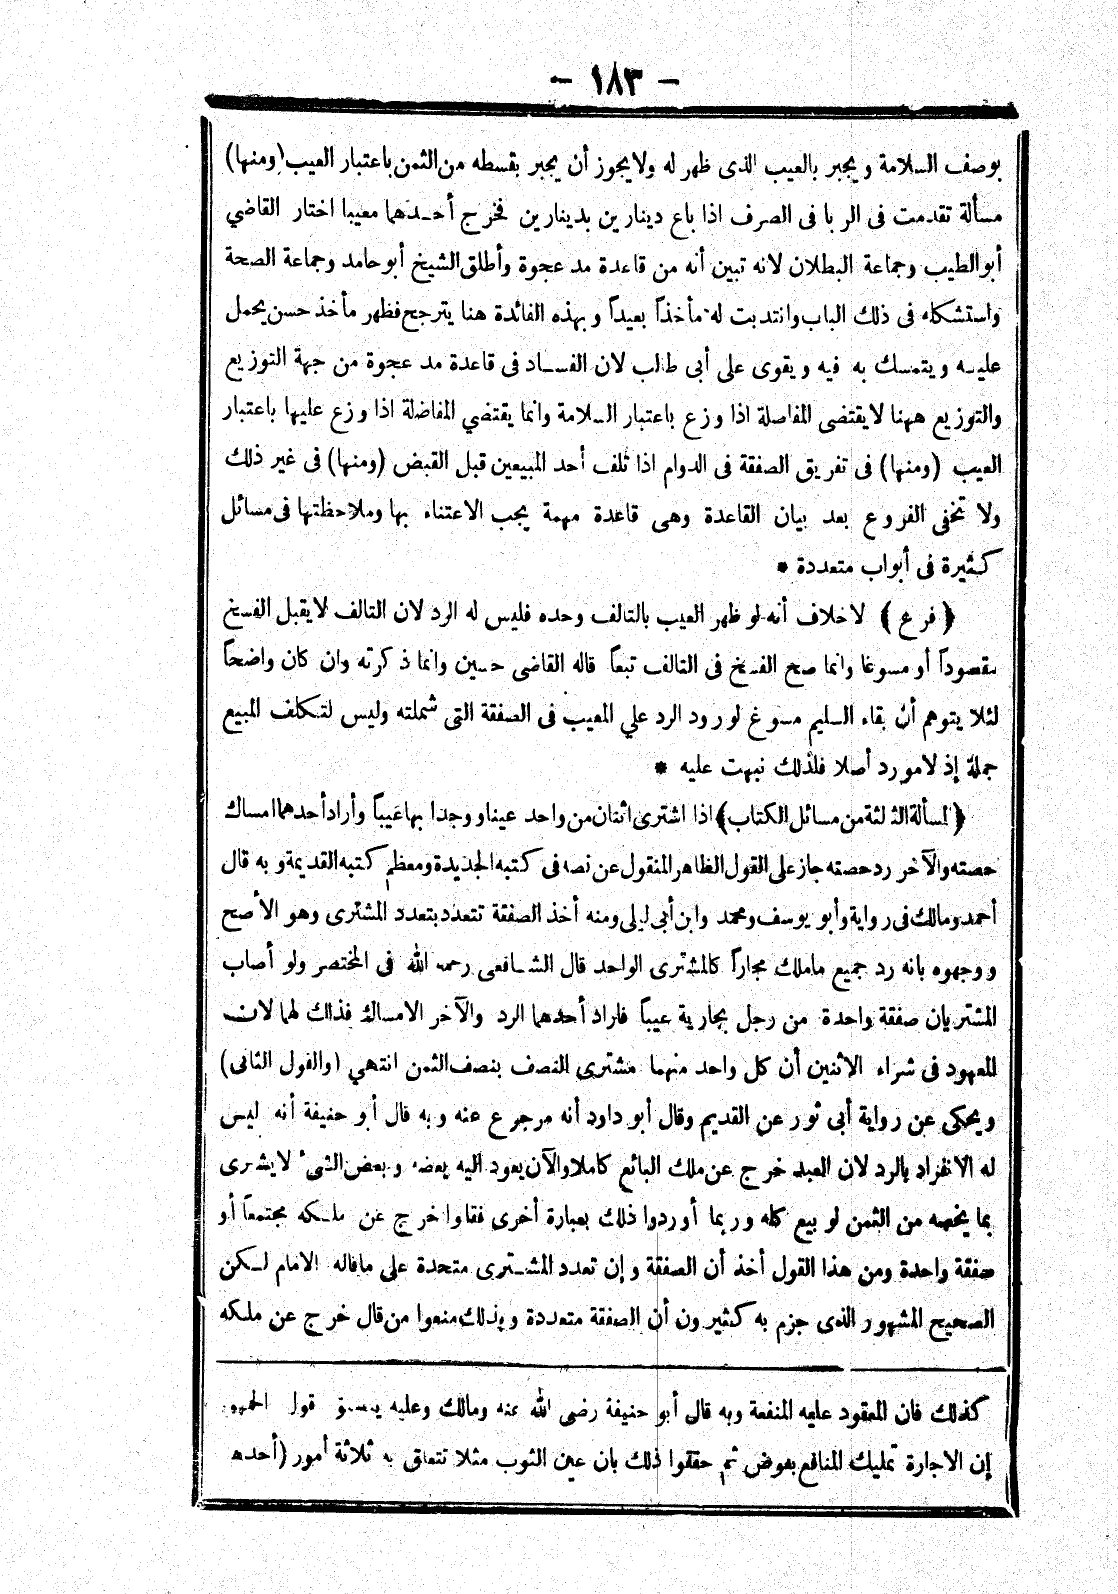 - ١٨٣ -
بوصف السلامة ويجبر بالعيب الذى ظهر له ولا يجوز أن يجبر بقسطه من الثمن باعتبار العيب (ومنها)
مسألة تقدمت فى الربا فى الصرف اذا باع دينارين بدينارين فخرج أحدهما معيبا اختار القاضي
أبو الطيب وجماعة البطلان لانه تبين أنه من قاعدة مد عجوة وأطلق الشيخ أبو حامد وجماعة الصحة
واستشكاه فى ذلك الباب وانتدبت له مأخذاً بعيداً وبهذه الفائدة هنا يترجح فظهر مأخذ حسن يحمل
عليه ويتمسك به فيه ويقوى على أبى طالب لان الفساد فى قاعدة مد عجوة من جهة التوزيع
والتوزيع ههنا لا يقتضى المفاصلة اذا وزع باعتبار السلامة وانما يقتضي المفاضلة اذا وزع عليها باعتبار
العيب (ومنها) فى تفريق الصفقة فى الدوام اذا تلف أحد المبيعين قبل القبض (ومنها) فى غير ذلك
ولا تخفى الفروع بعد بيان القاعدة وهى قاعدة مهمة يجب الاعتناء بها وملاحظتها فى مسائل
كثيرة فى أبواب متعددة *
﴿فرع﴾ لا خلاف أنه لو ظهر العيب بالتالف وحده فليس له الرد لان التالف لا يقبل الفسخ
مقصوداً أو مسوغا وانما صح الفسخ فى التالف تبعاً قاله القاضى حسين وانما ذكرته وان كان واضحاً
لئلا يتوهم أن بقاء السليم مسوغ لورود الرد علي المعيب فى الصفقة التى شملته وليس لتكلف المبيع
جملة إذ لا مورد أصلا فلذلك نبهت عليه *
﴿المسألة الثالثة من مسائل الكتاب﴾ اذا اشترى اثنان من واحد عينا ووجدا بها عيباً وأراد أحدهما امساك
حصته والآخر رد حصته جاز على القول الظاهر المنقول عن نصه فى كتبه الجديدة ومعظم كتبه القديمة وبه قال
أحمد ومالك فى رواية وأبو يوسف ومحمد وابن أبى ليلى ومنه أخذ الصفقة تتعدد بتعدد المشترى وهو الأصح
ووجهوه بانه رد جميع ماملك مجاراً كالمشترى الواحد قال الشافعى رحمه الله فى المختصر ولو أصاب
المشتريان صفقة واحدة من رجل بجارية عيباً فاراد أحدهما الرد والآخر الامساك فذلك لهما لان
المعهود فى شراء الاثنين أن كل واحد منهما مشترى النصف بنصف الثمن انتهي (والقول الثانى)
ويحكى عن رواية أبى ثور عن القديم وقال أبو داود أنه مرجوع عنه وبه قال أبو حنيفة أنه ليس
له الانفراد بالرد لان العبد خرج عن ملك البائع كاملا والآن يعود اليه بعضه وبعض الشئ لا يشترى
بما يخصه من الثمن لو بيع كله وربما أوردوا ذلك بعبارة أخرى فقاوا خرج عن ملكه مجتمعاً أو
صفقة واحدة ومن هذا القول أخذ أن الصفقة وإن تعدد المشترى متحدة على ماقاله الامام لكن
الصحيح المشهور الذى جزم به كثيرون أن الصفقة متعددة وبذلك منعوا من قال خرج عن ملكه
كذلك فان المعقود عليه المنفعة وبه قال أبو حنيفة رضى الله عنه ومالك وعليه قول
إن الاجارة تمليك المنافع بعوض ثم حققوا ذلك بان عين الثوب مثلا تتعلق به ثلاثة أمور (أحده